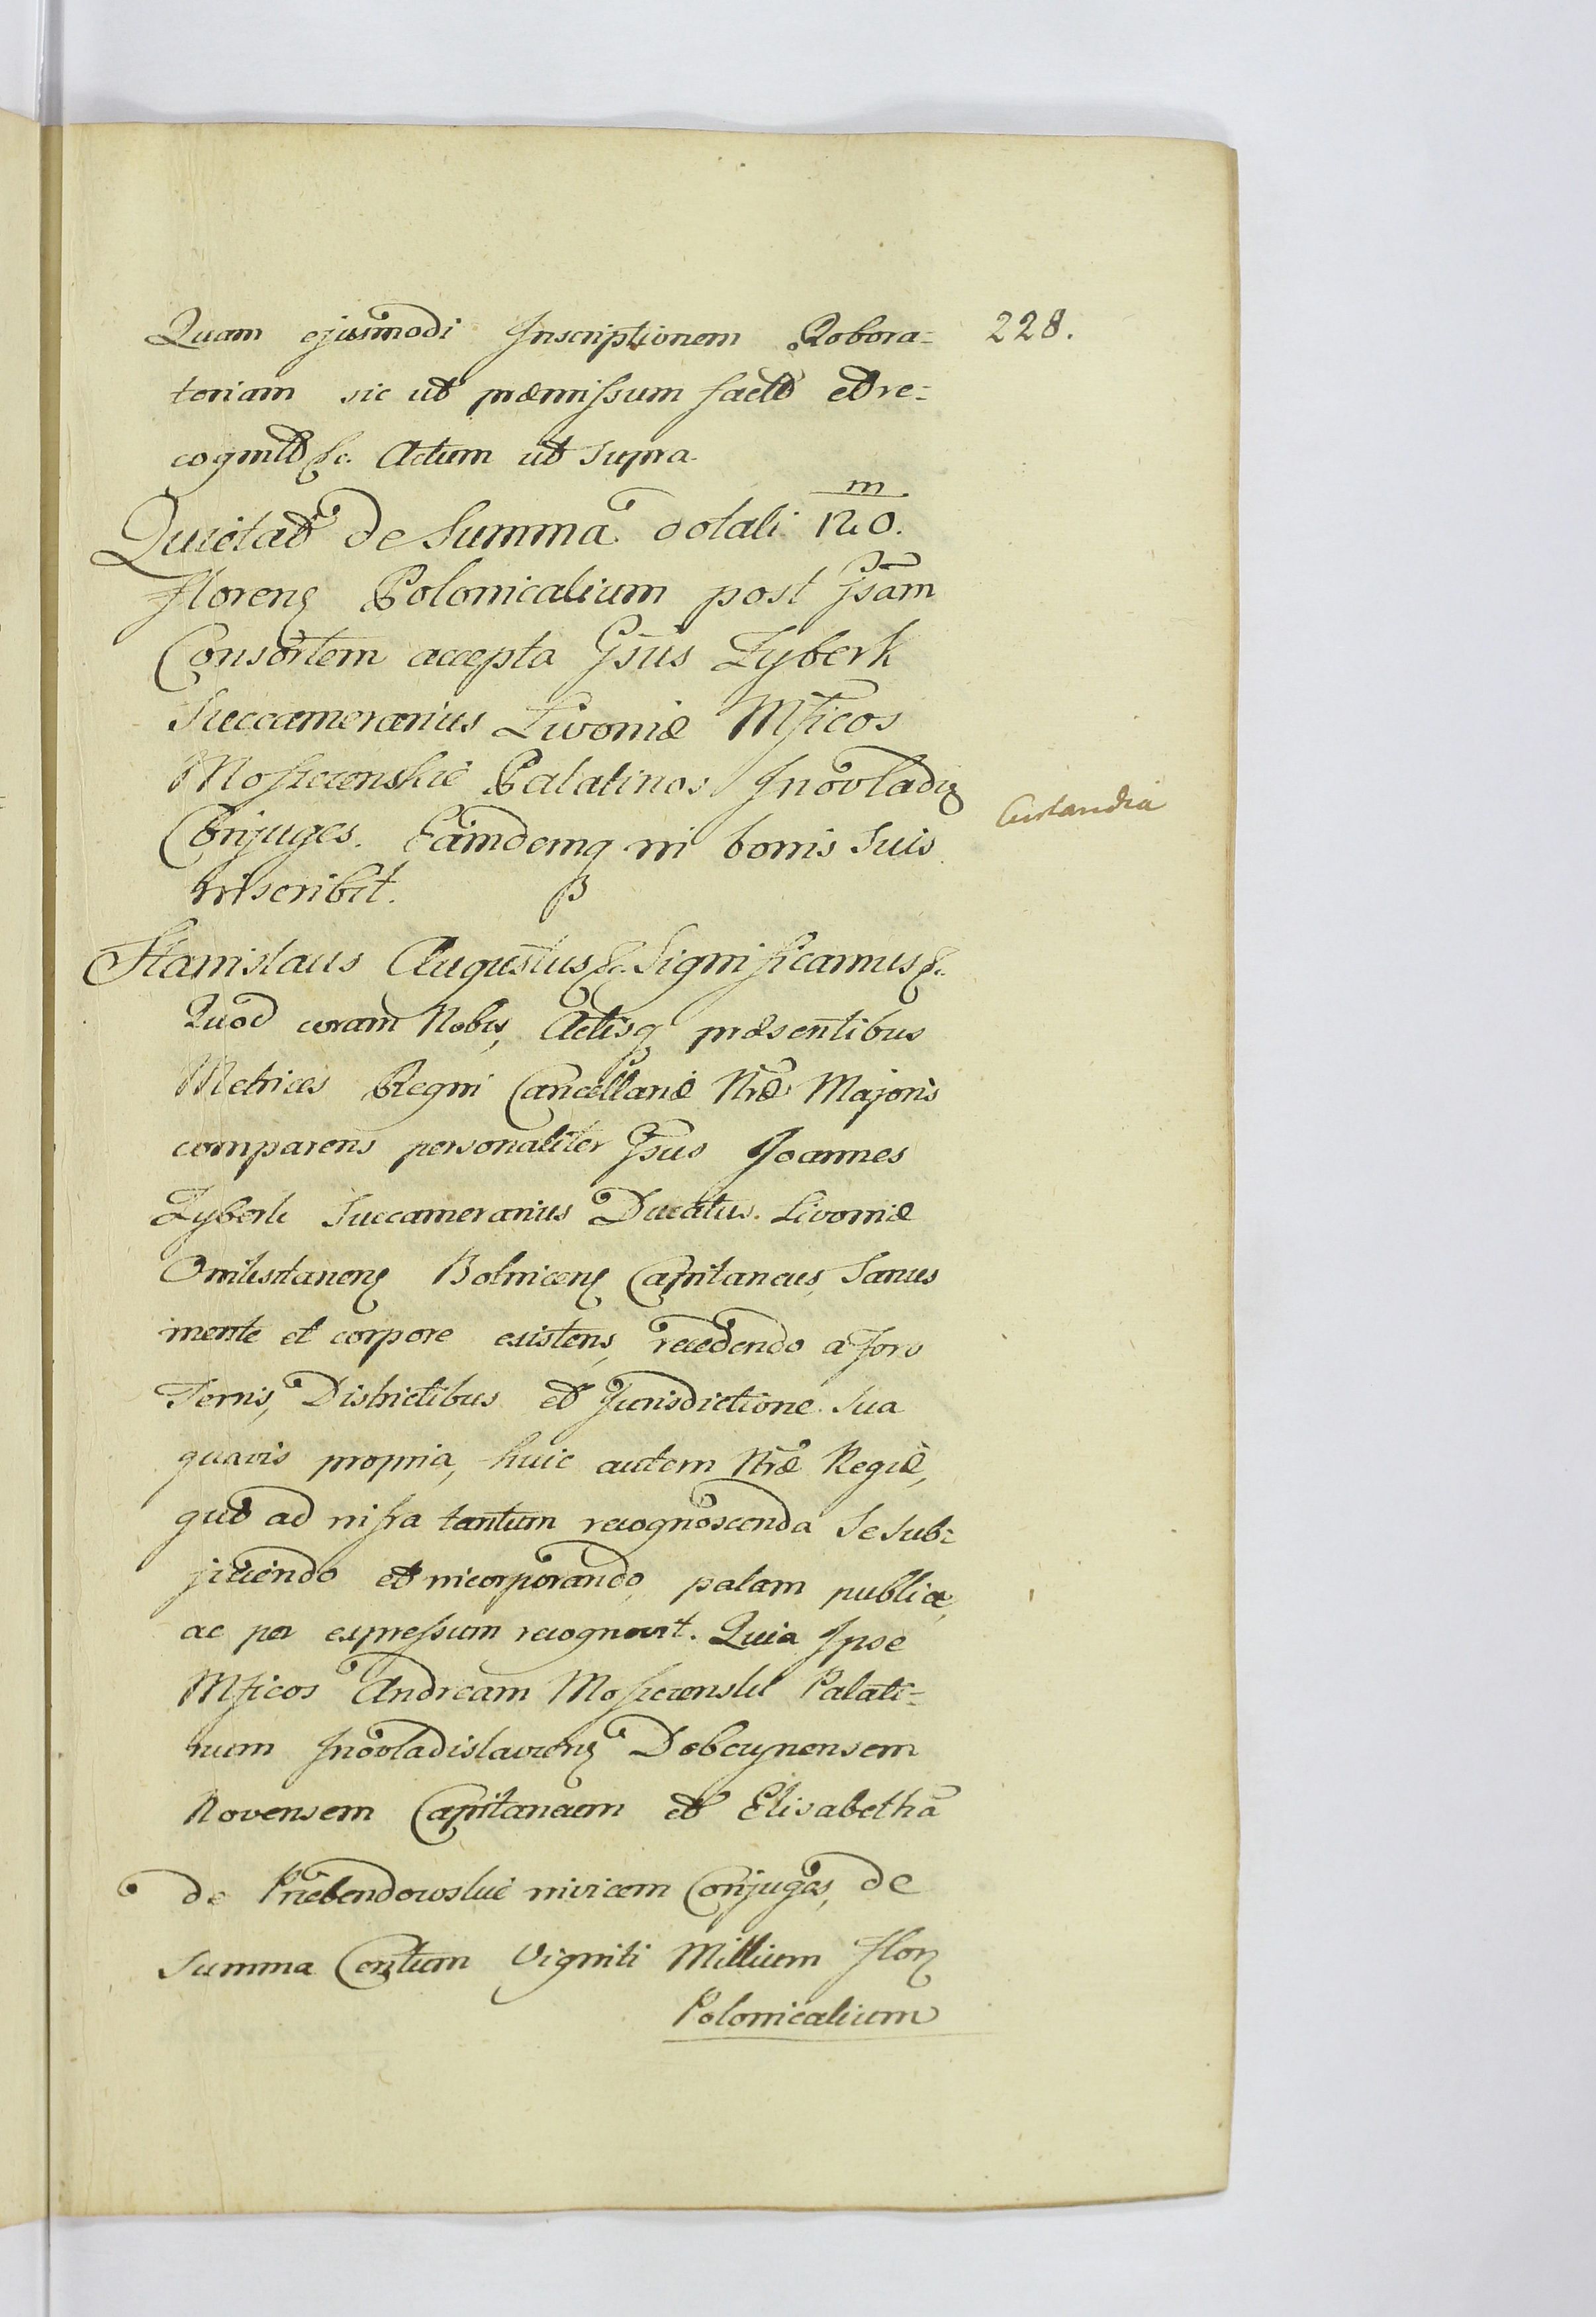 Quam ejusmodi Inscriptionem Robora= 228.
toriam sic ut præmissum facto et re=
cognito &c. Actum ut supra
Quietat de Summa dotali 120. m
florenẹ Polonicalium post Gsam
Consortem accepta Gsus Zyberk
Succamerarius Livoniæ Mficos
Moszczenskie Palatinos Inovladiẹ
Conjuges. Eamdemq in bonis suis
inscribit.
Curlandia
Stanislaus Augustus &c. Significamus &c.
Quod coram Nobis, Actisq præsentibus
Metrices Regni Cancellariæ Nræ Majoris
comparens personaliter Gsus Joannes
Zyberk Succamerarius Ducatus Livoniæ
Bolnicenẹ Capitaneus, Sanus
mente et corpore existens, recedendo a foro
Terris, Districtibus et Jurisdictione sua
quavis propria, huic autem Nræ Regiæ,
quo ad infra tantum recognoscenda Se sub=
jiciendo et incorporando, palam publice,
ac per expressum recognovit. Quia Ipse
Mficos Andream Moszczenski Palati=
num Inovladislavienẹ Dobcynensem
Rovensem Capitaneum et Elisabetham
de Przebendowskie invicem Conjuges, de
summa Centum Viginti Millium flor
Polonicalium